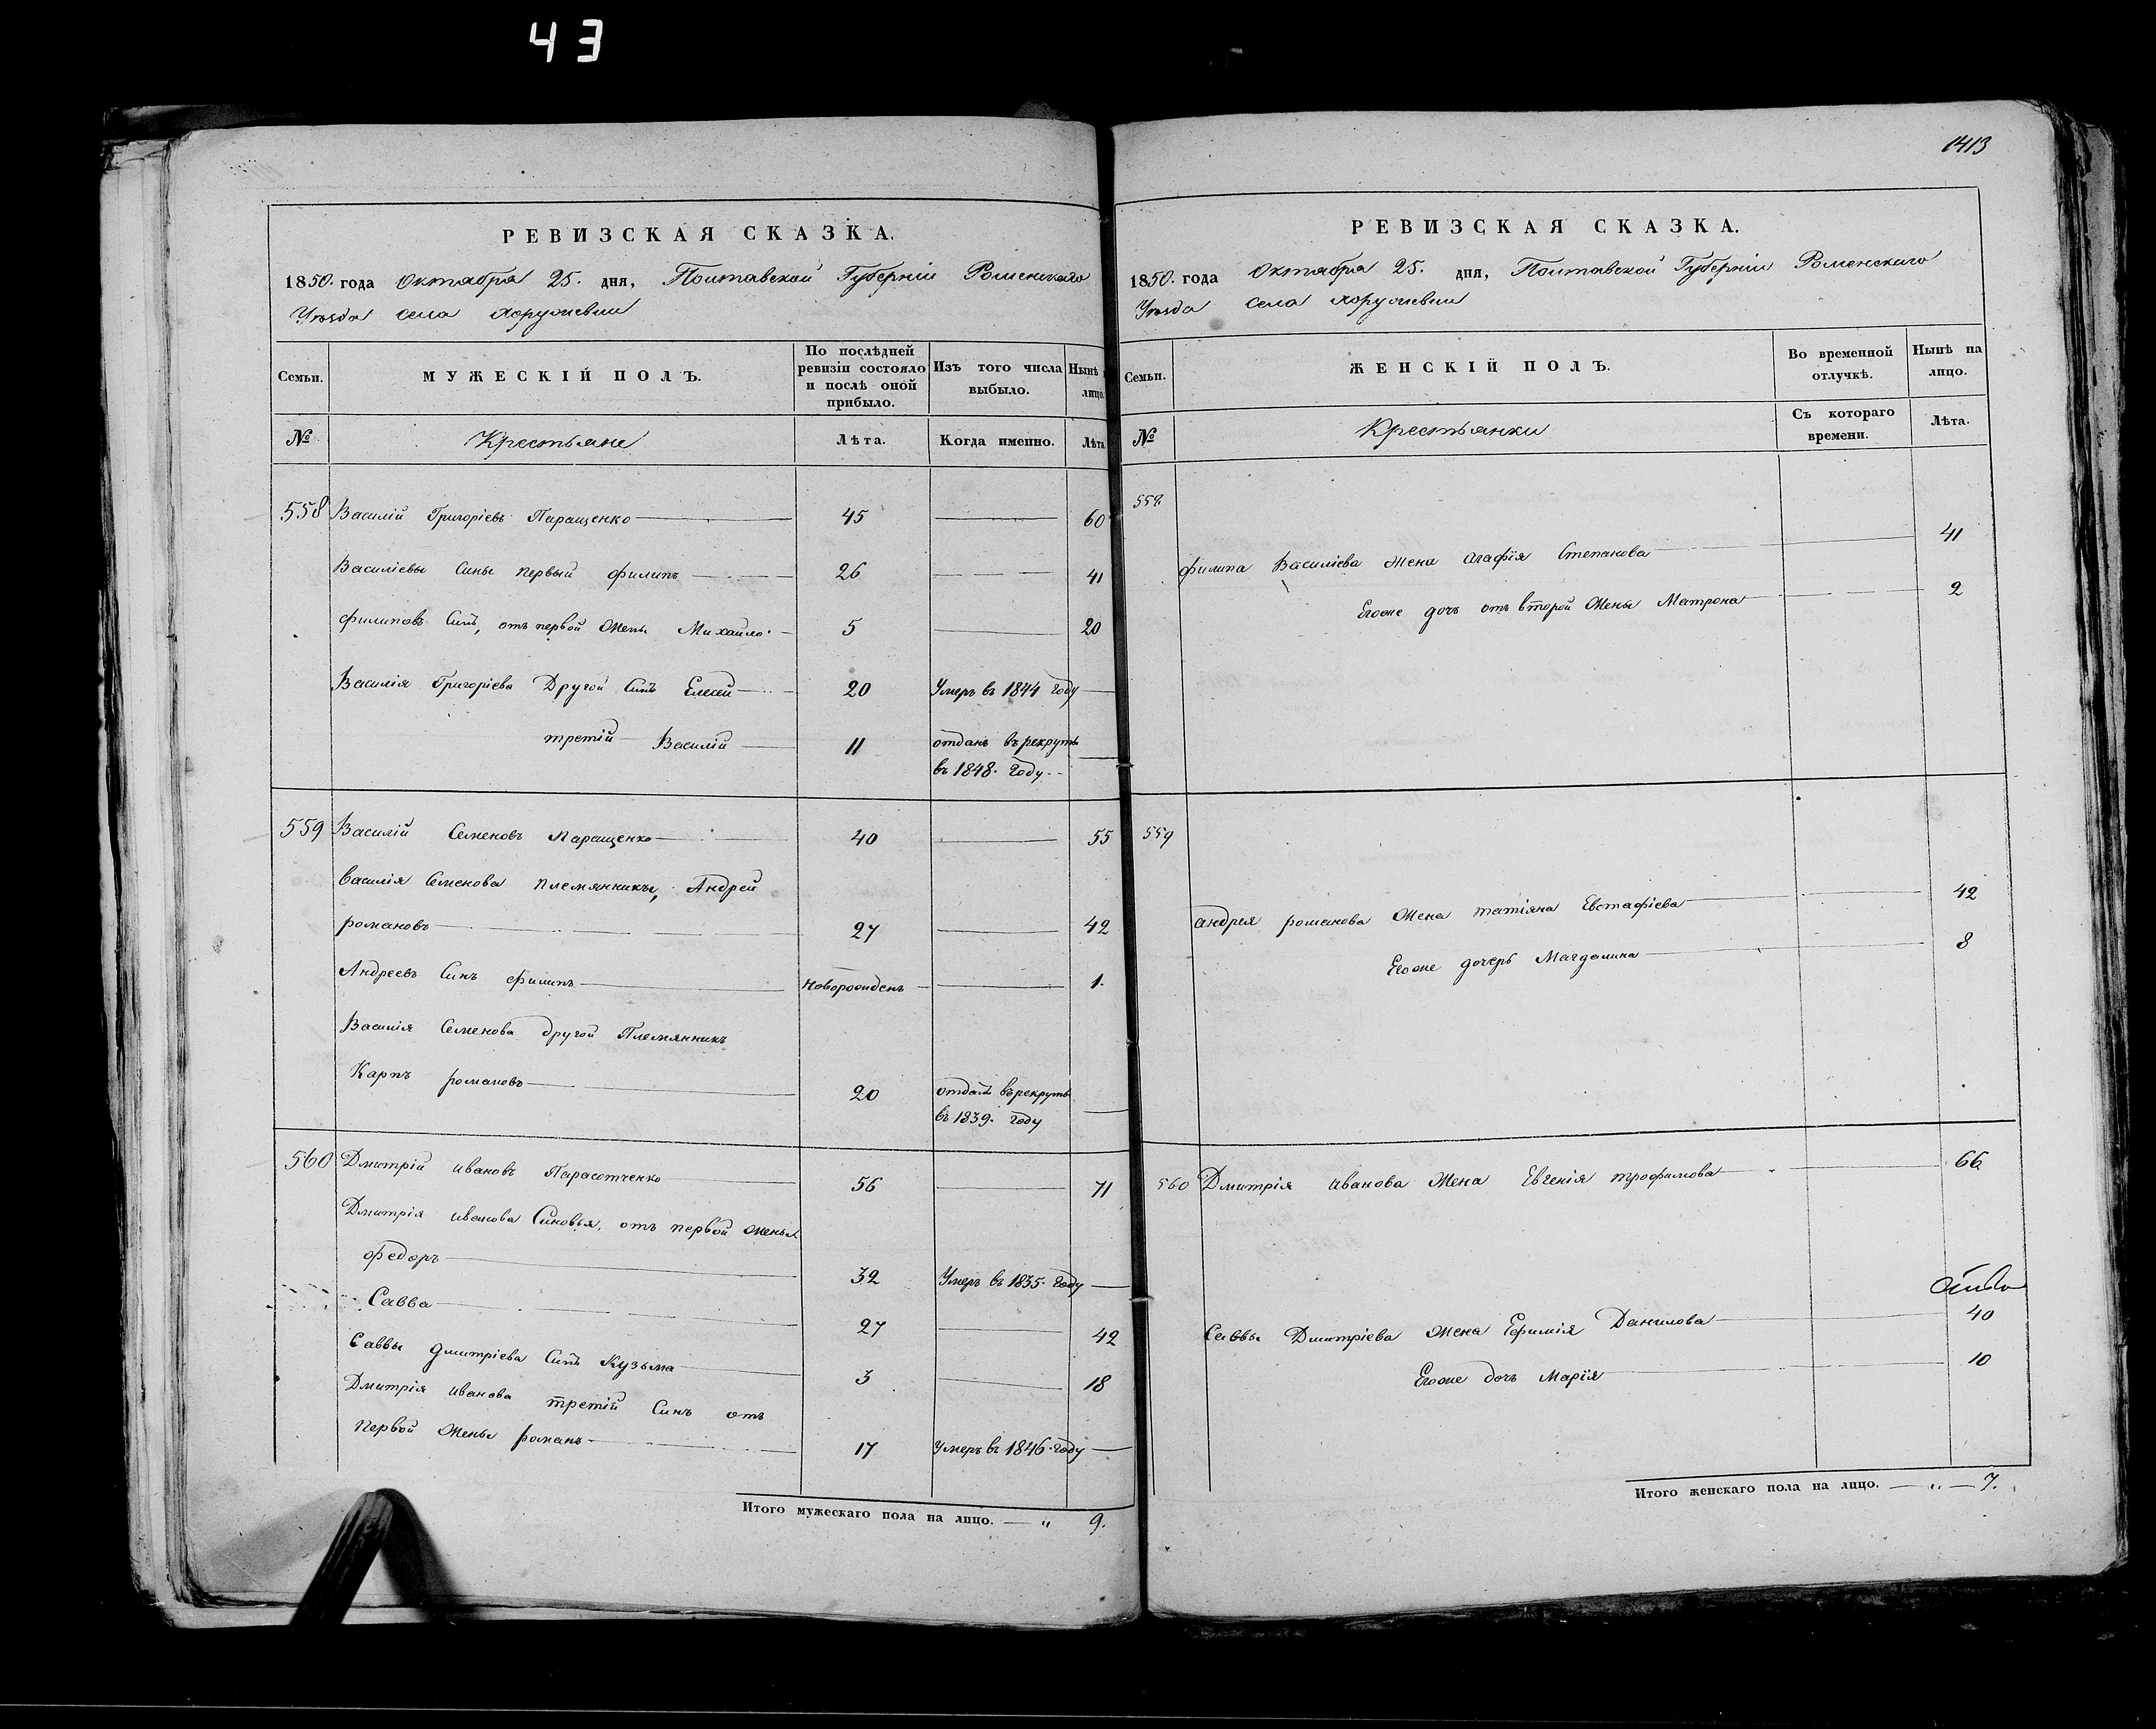 43
РЕВИЗСКАЯ СКАЗКА.
1850. года Октября 25. дня, Полтавской Губерніи Роменскаго
Уезда села Хоружевки
Семьи.
МУЖЕСКІЙ ПОЛЪ.
По послѣдней ревизіи состояло и послѣ оной прибыло.
Изъ того числа выбыло.
Нынѣ лицо.
№
Крестьяне
Лѣта.
Когда именно.
Лѣта
558 Василій Григоріевъ Паращенко 45 60
Василіевы Сины первый филипъ 26 41
филиповъ Синъ, отъ первой Жены Михайло 5 20
Василія Григоріева Другой Синъ Елесей 20 Умеръ въ 1844 году
третій Василій 11 отданъ въ рекруты
въ 1848. году
559 Василій Семеновъ Паращенко 40 55
Василія Семенова племянники, Андрей
романовъ 27 42
Андреевъ Синъ филипъ Новорожденъ 1.
Василія Семенова другой Племянникъ
Карпъ романовъ 20 отданъ въ рекруты
въ 1839. году
560 Дмитрій ивановъ Парасотченко 56 71
Дмитрія иванова Синовья, отъ первой жены
федоръ 32 Умеръ въ 1835. году
Савва 27 42
Саввы дмитріева Синъ Кузьма 3 18
Дмитрія иванова третій Синъ отъ
первой жены романъ 17 умеръ въ 1846. году
Итого мужескаго пола на лицо. — „ 9.
1413
РЕВИЗСКАЯ СКАЗКА.
1850. года Октября 25. дня, Полтавской Губерніи Роменскаго
Уезда села Хоружевки
Семьи.
ЖЕНСКІЙ ПОЛЪ.
Во временной отлучкѣ.
Нынѣ на лицо.
№
Крестьянки
Съ котораго времени.
Лѣта.
558.
филипа Василіева жена агафія Степанова 41
Егоже дочь отъ второй Жены Матрона 2
559
андрея романова Жена татіяна Евстафіева 42
Егоже дочерь Магдалина 8
560 Дмитрія иванова Жена Евгенія трофимова 66
Саввы Дмитріева жена Ефимія Данилова 40
Егоже дочь Марія 10
Итого женскаго пола на лицо. — „ — 7.